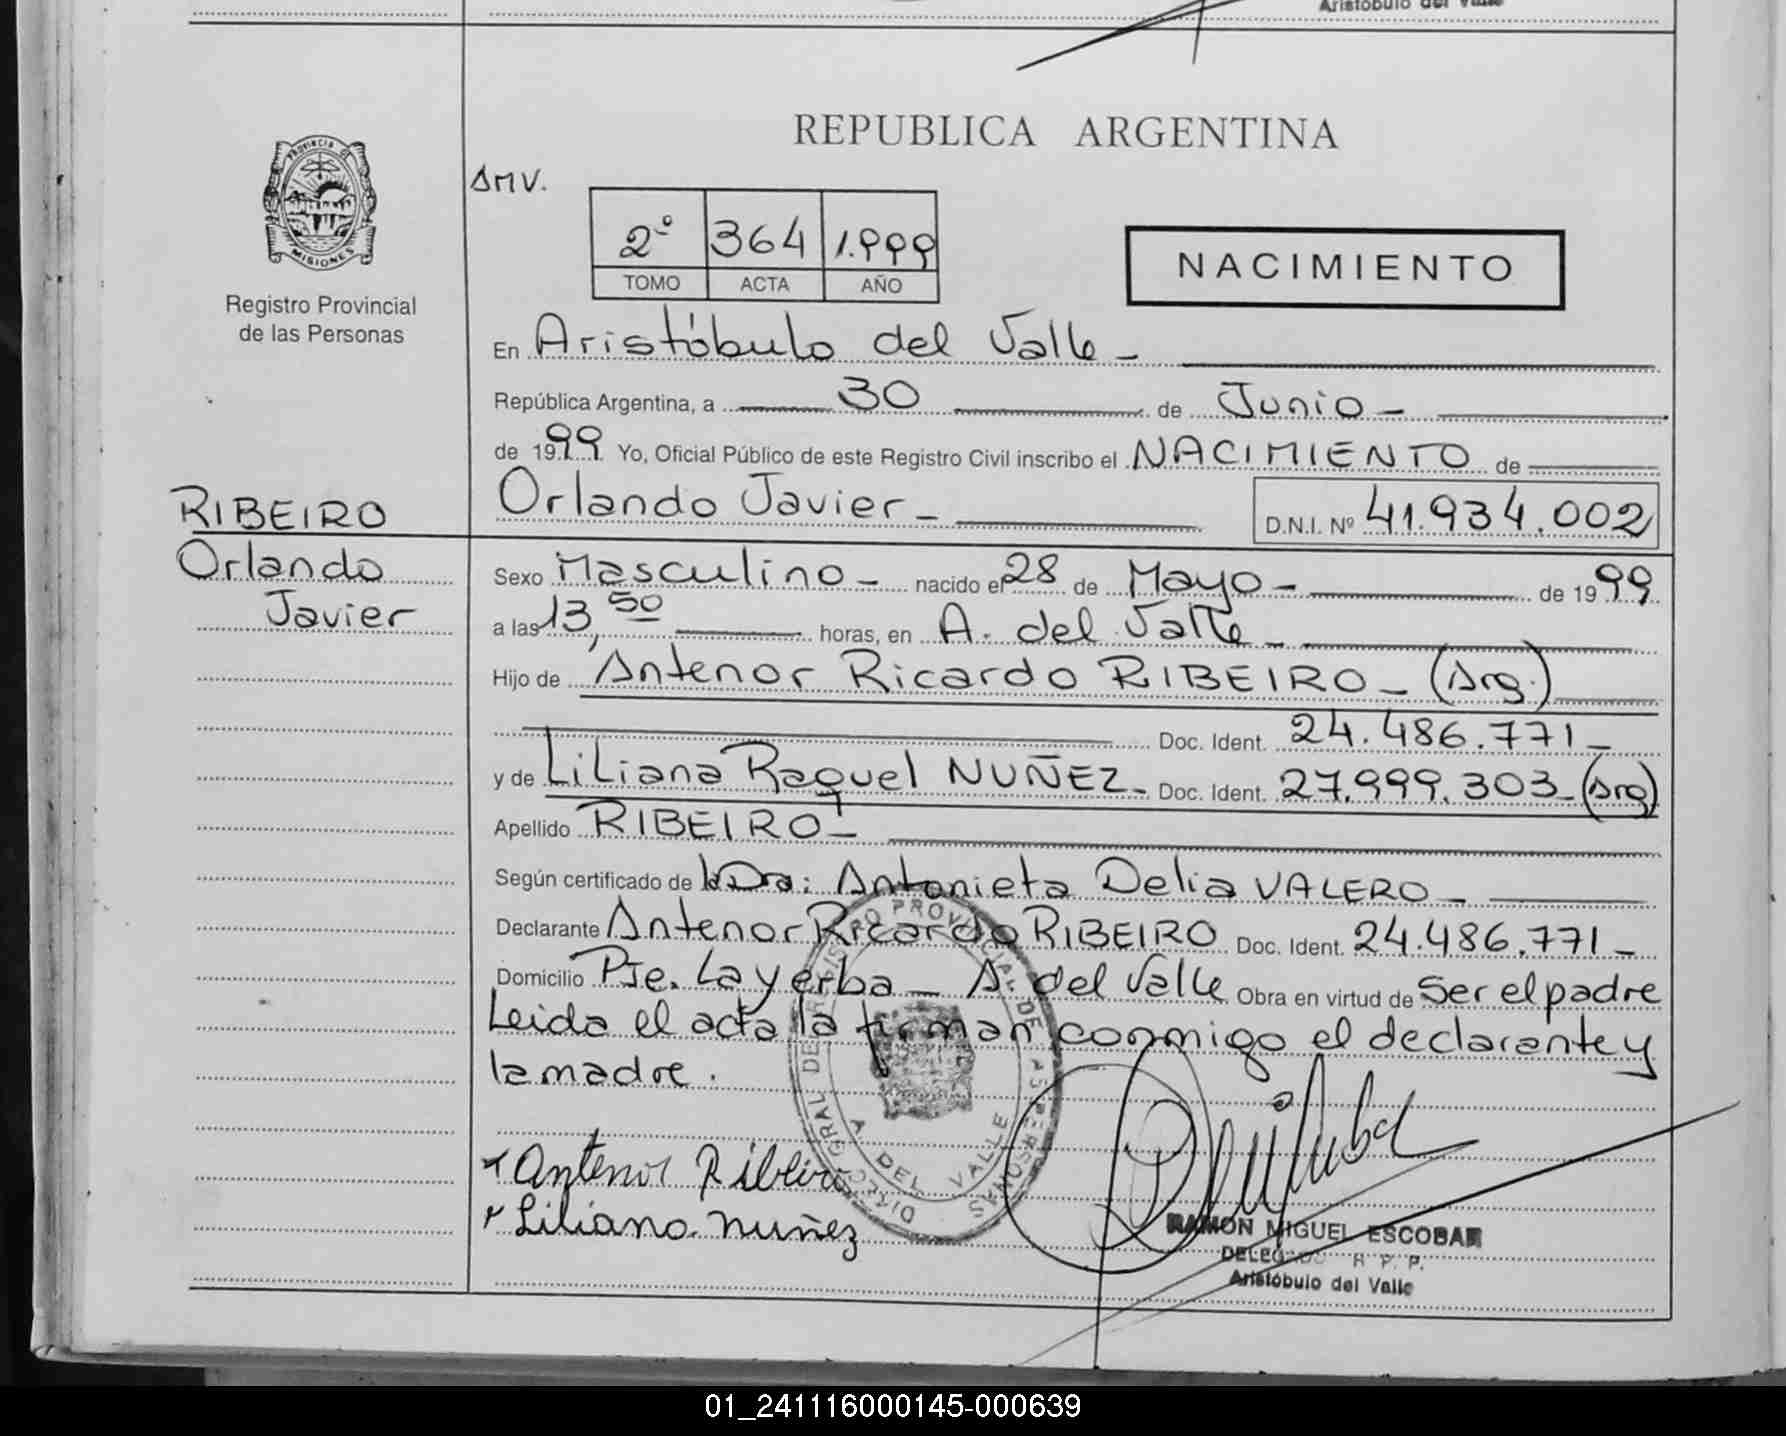 Aristóbulo del Valle
REPUBLICA ARGENTINA
PROVINCIA DE
MISIONES
Registro Provincial
de las Personas
AMV.
2º 364 1.999
TOMO ACTA AÑO
NACIMIENTO
En Aristóbulo del Valle -
República Argentina, a 30 de Junio -
de 1999 Yo, Oficial Público de este Registro Civil inscribo el NACIMIENTO de
Orlando Javier - D.N.I. Nº 41.934.002
RIBEIRO
Orlando
Javier
Sexo Masculino - nacido el 28 de Mayo - de 1999
a las 13,50 horas, en A. del Valle -
Hijo de Antenor Ricardo RIBEIRO - (Arg.)
Doc. Ident. 24.486.771 -
y de Liliana Raquel NUÑEZ - Doc. Ident. 27.999.303 - (Arg)
Apellido RIBEIRO -
Según certificado de la Dra: Antonieta Delia VALERO -
Declarante Antenor Ricardo RIBEIRO Doc. Ident. 24.486.771 -
Domicilio Pje. La yerba - A. del Valle Obra en virtud de Ser el padre
Leida el acta la firman conmigo el declarante y
la madre.
Antenor Ribeiro
Liliana Nuñez
DIREC. GRAL DE REGISTRO PROVINCIAL DE LAS PERSONAS
A. DEL VALLE
RAMON MIGUEL ESCOBAR
DELEGADO R. P. P.
Aristóbulo del Valle
01_241116000145-000639